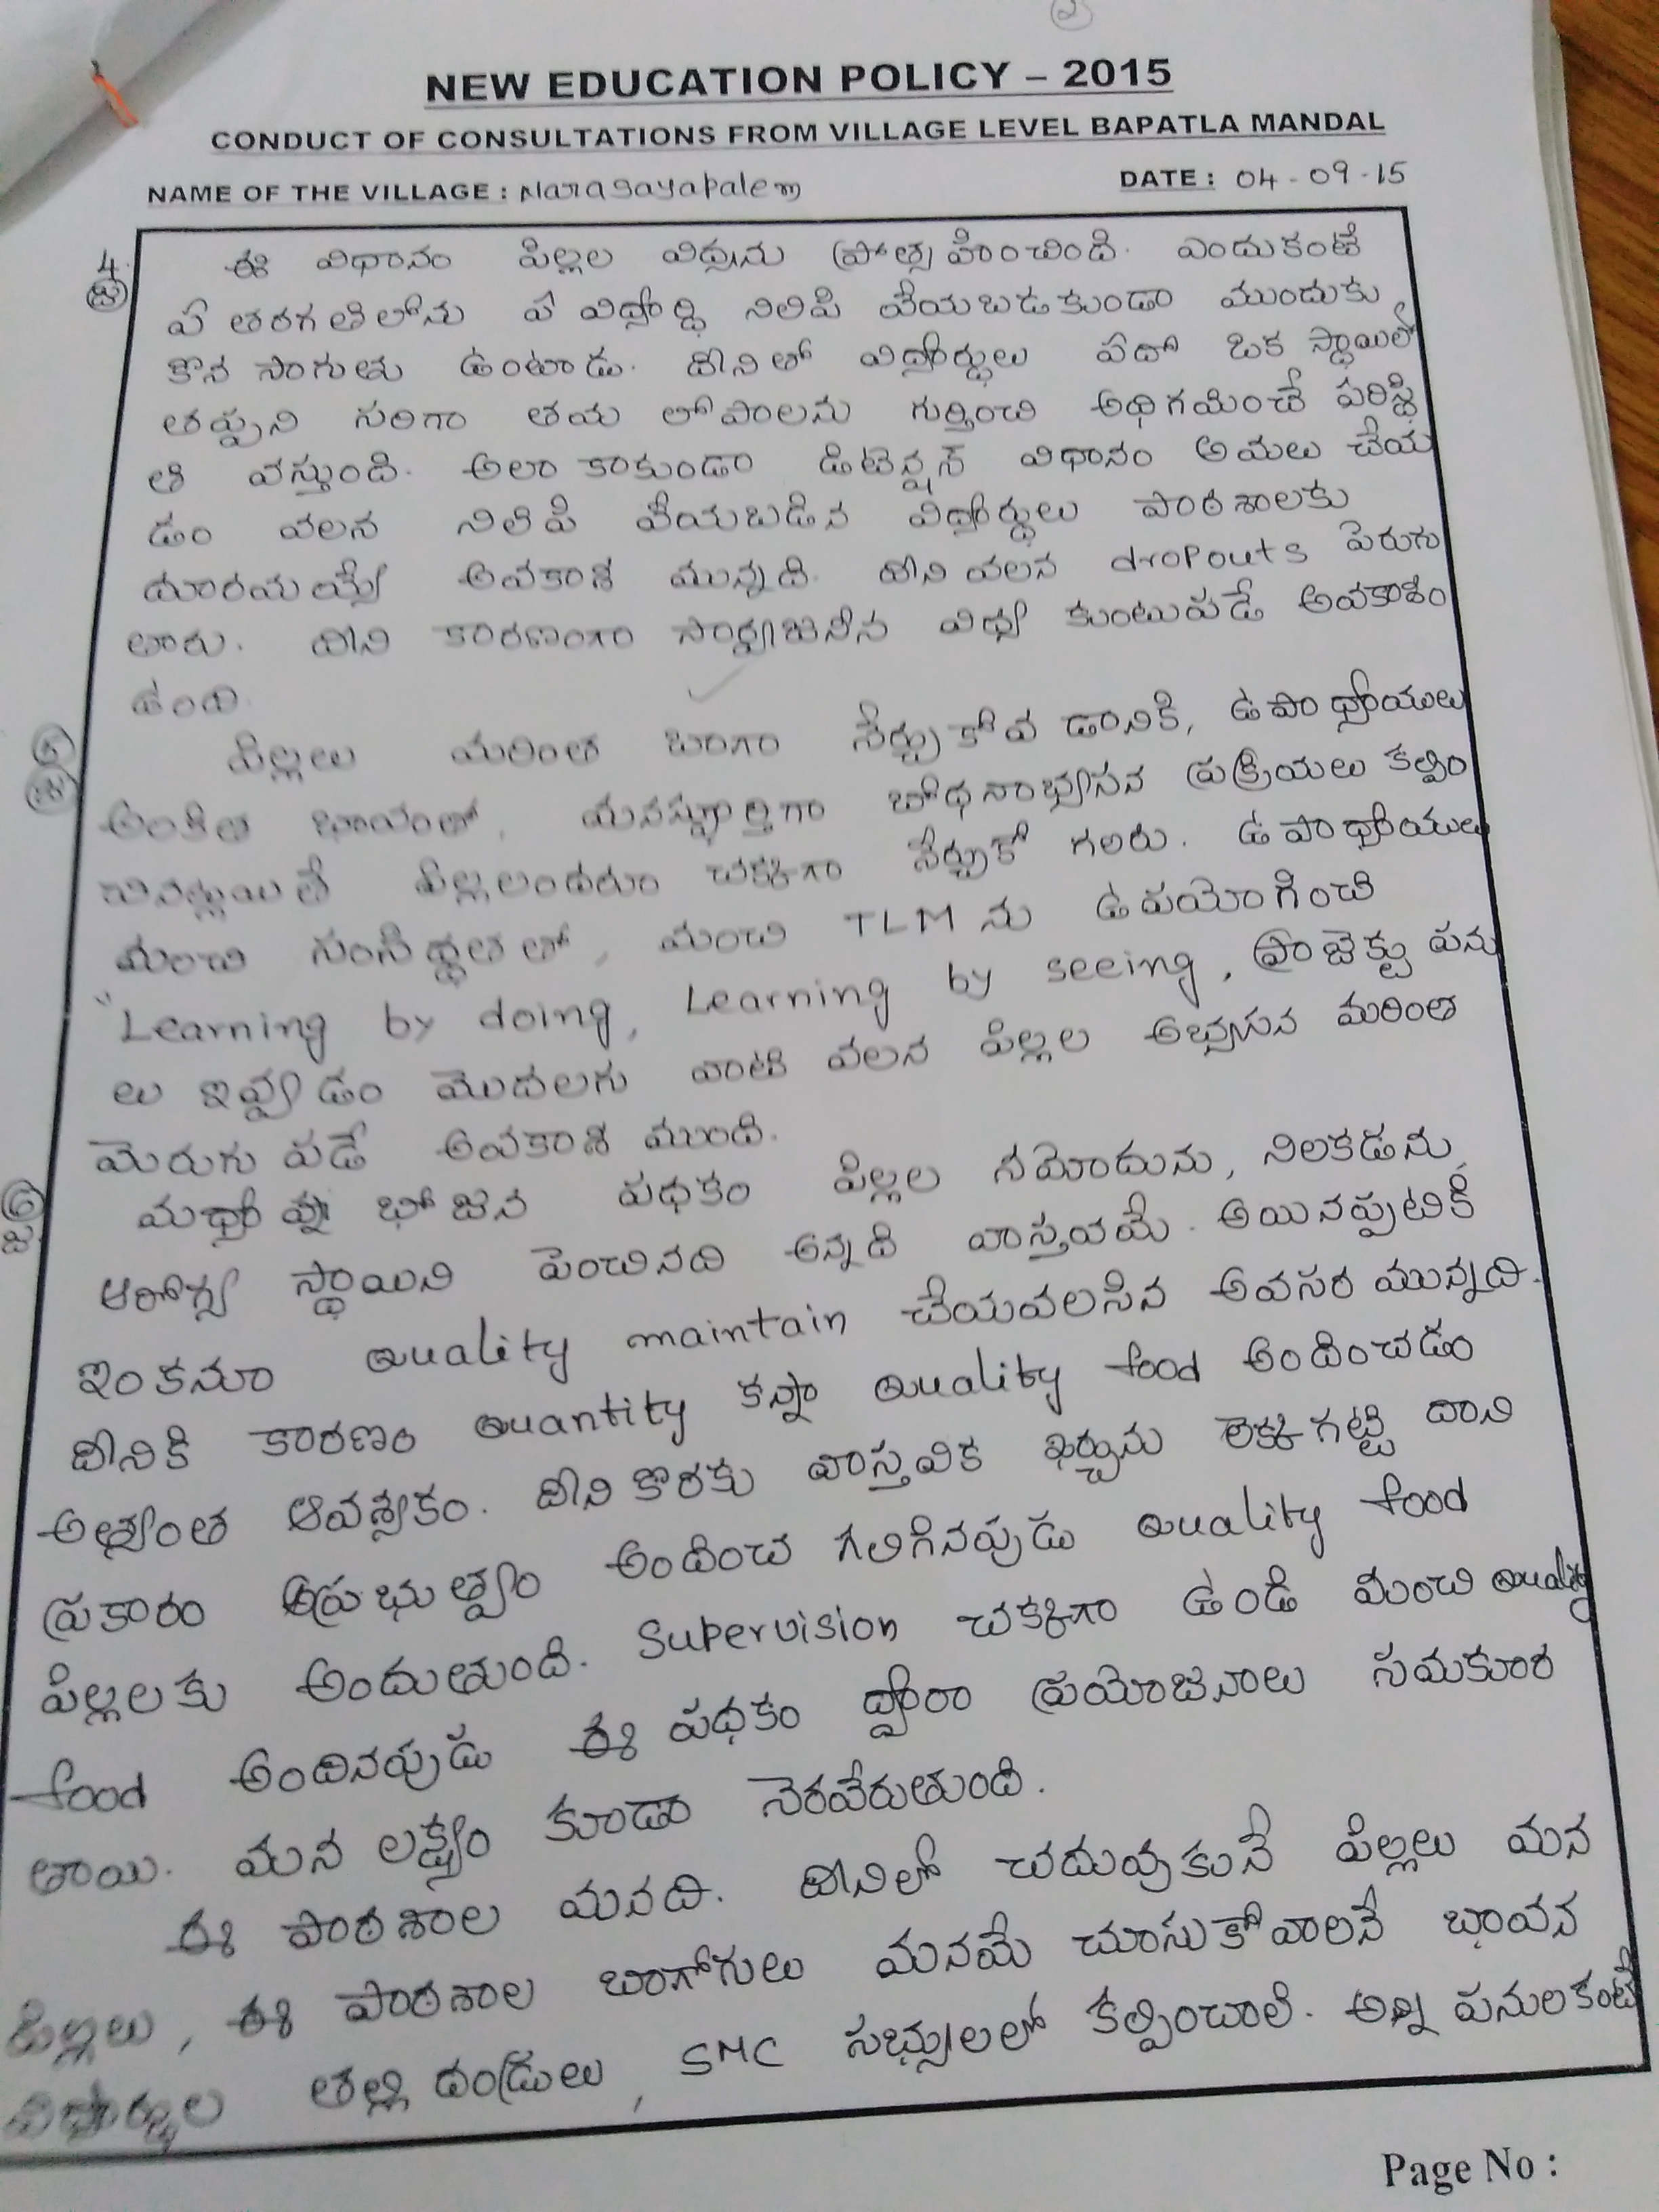 2
NEW EDUCATION POLICY – 2015
CONDUCT OF CONSULTATIONS FROM VILLAGE LEVEL BAPATLA MANDAL
NAME OF THE VILLAGE : Narasayapalem DATE : 04-09-15
4. జ ఈ విధానం పిల్లల విద్యను ప్రోత్సహించింది. ఎందుకంటే
ఏ తరగతిలోను ఏ విద్యార్థి నిలిపి వేయబడకుండా ముందుకు
కొనసాగుతు ఉంటాడు. దీనితో విద్యార్థులు ఏదో ఒక స్థాయిలో
తప్పని సరిగా తమ లోపాలను గుర్తించి అధిగమించే పరిస్థి
తి వస్తుంది. అలా కాకుండా డిటెన్షన్ విధానం అమలు చేయ
డం వలన నిలిపి వేయబడిన విద్యార్థులు పాఠశాలకు
దూరమయ్యే అవకాశ మున్నది. దీని వలన dropouts పెరుగు
తారు. దీని కారణంగా సార్వజనీన విధ్య కుంటుపడే అవకాశం
ఉంది.
5 జ పిల్లలు మరింత బాగా నేర్చుకోవడానికి, ఉపాధ్యాయులు
అంకిత భావంతో, మనస్ఫూర్తిగా బోధనాభ్యసన ప్రక్రియలు కల్పిం
చినట్లయితే పిల్లలందరూ చక్కగా నేర్చుకో గలరు. ఉపాధ్యాయులు
మంచి సంసిద్ధతతో, మంచి TLM ను ఉపయోగించి
"Learning by doing, Learning by seeing, ప్రాజెక్టు పను
లు ఇవ్వడం మొదలగు వాటి వలన పిల్లల అభ్యసన మరింత
మెరుగు పడే అవకాశ ముంది.
6 జ మధ్యాహ్న భోజన పథకం పిల్లల నమోదును, నిలకడను,
ఆరోగ్య స్థాయిని పెంచినది అన్నది వాస్తవమే. అయినప్పటికీ
ఇంకనూ quality maintain చేయవలసిన అవసర మున్నది.
దీనికి కారణం quantity కన్నా quality food అందించడం
అత్యంత ఆవశ్యకం. దీని కొరకు వాస్తవిక ఖర్చును లెక్కగట్టి దాని
ప్రకారం ప్రభుత్వం అందించ గలిగినపుడు quality food
పిల్లలకు అందుతుంది. Supervision చక్కగా ఉండి మంచి quality
food అందినపుడు ఈ పథకం ద్వారా ప్రయోజనాలు సమకూర
తాయి. మన లక్ష్యం కూడా నెరవేరుతుంది.
ఈ పాఠశాల మనది. దీనిలో చదువుకునే పిల్లలు మన
పిల్లలు, ఈ పాఠశాల బాగోగులు మనమే చూసుకోవాలనే భావన
విద్యార్థుల తల్లిదండ్రులు, SMC సభ్యులలో కల్పించాలి. అన్ని పనులకంటే
Page No :